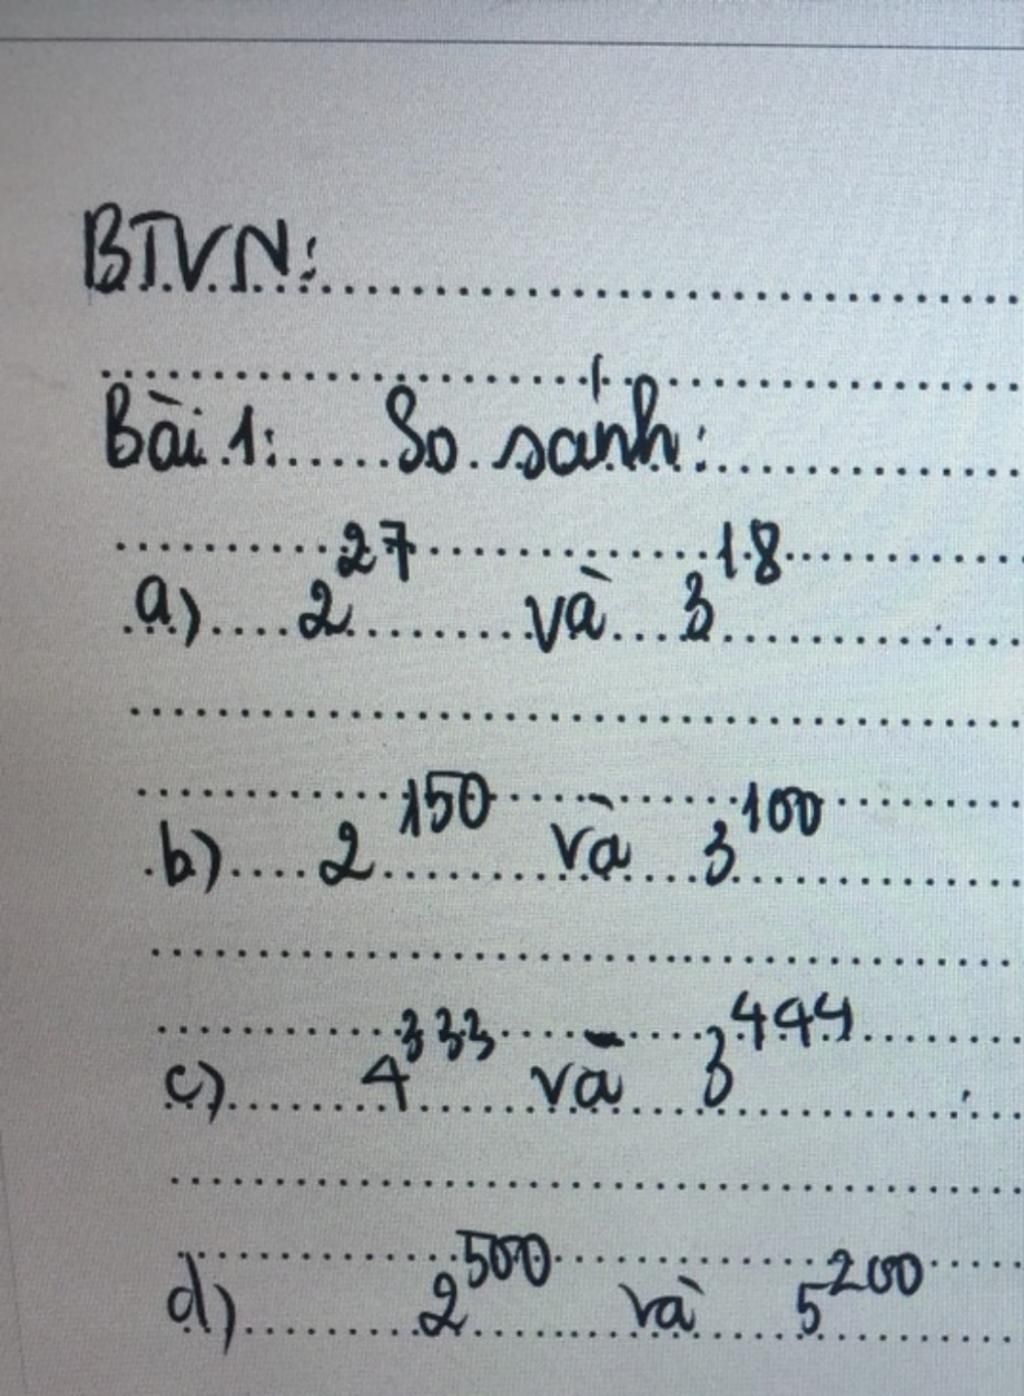 BTVN:
Bài 1: So sánh:
a) 2^27 và 3^18
b) 2^150 và 3^100
c) 4^333 và 3^444
d) 2^500 và 5^200